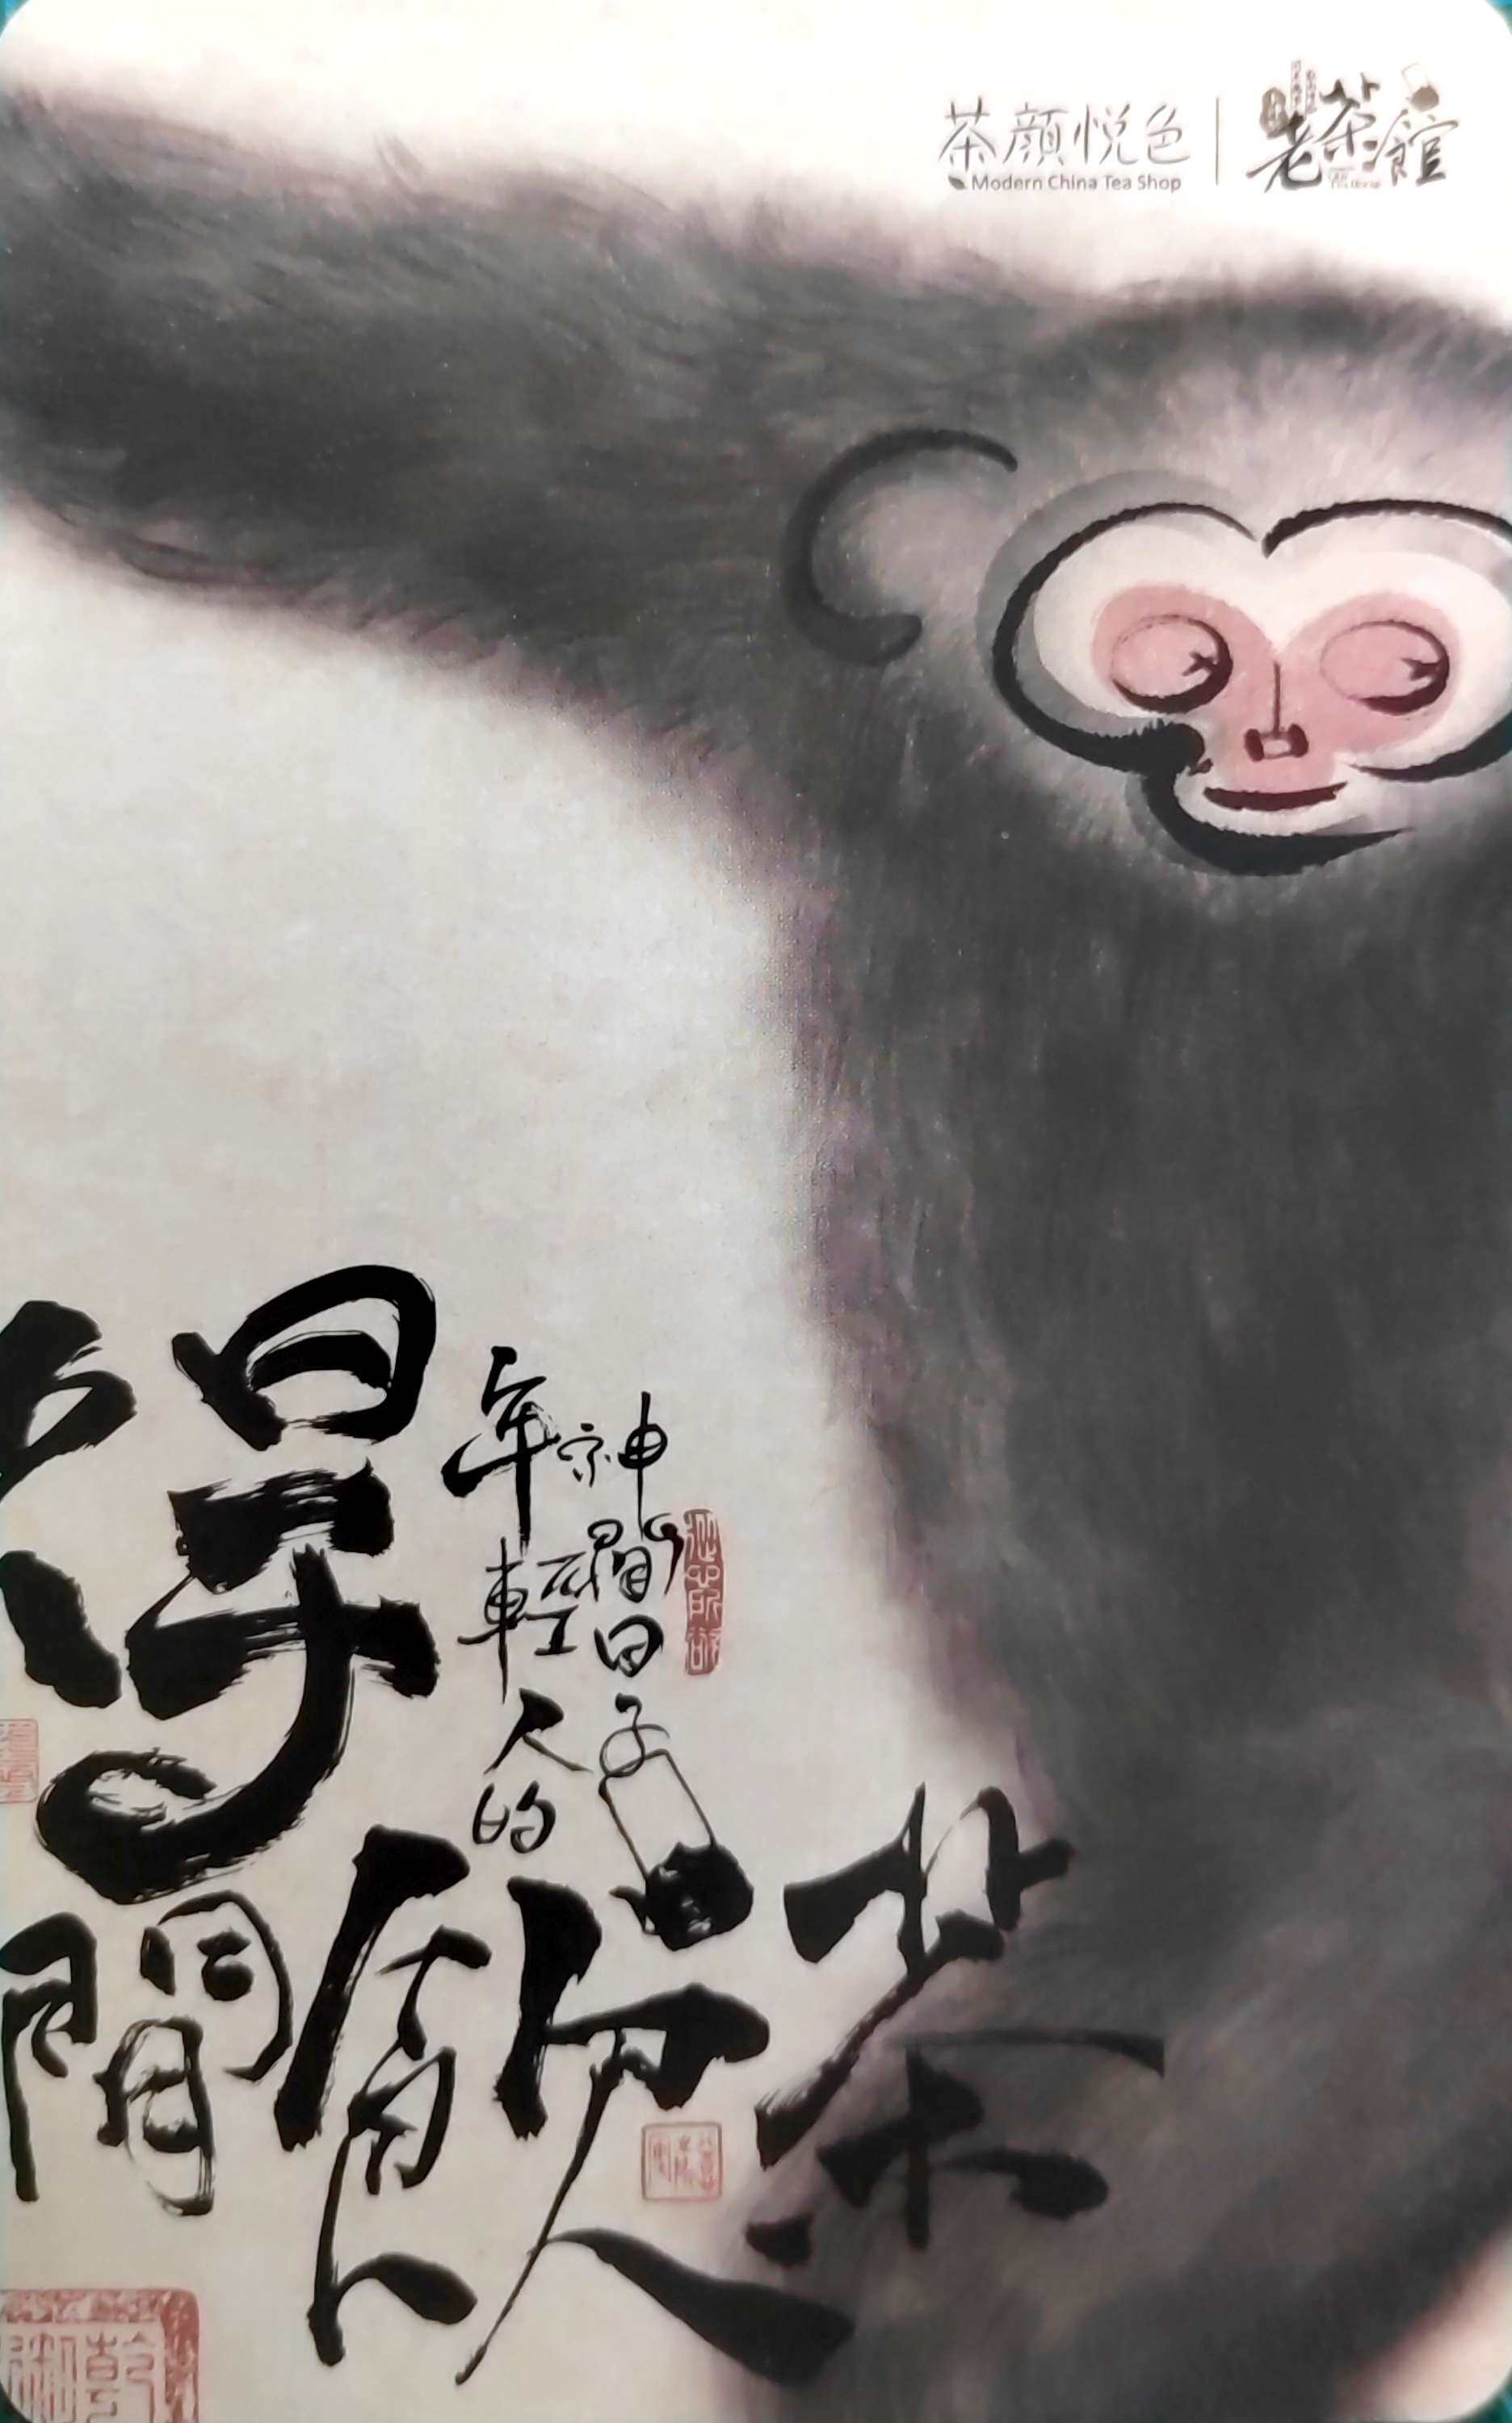 茶颜悦色
Modern China Tea Shop
老茶館
神閒日子
年輕人的
得閒飲茶